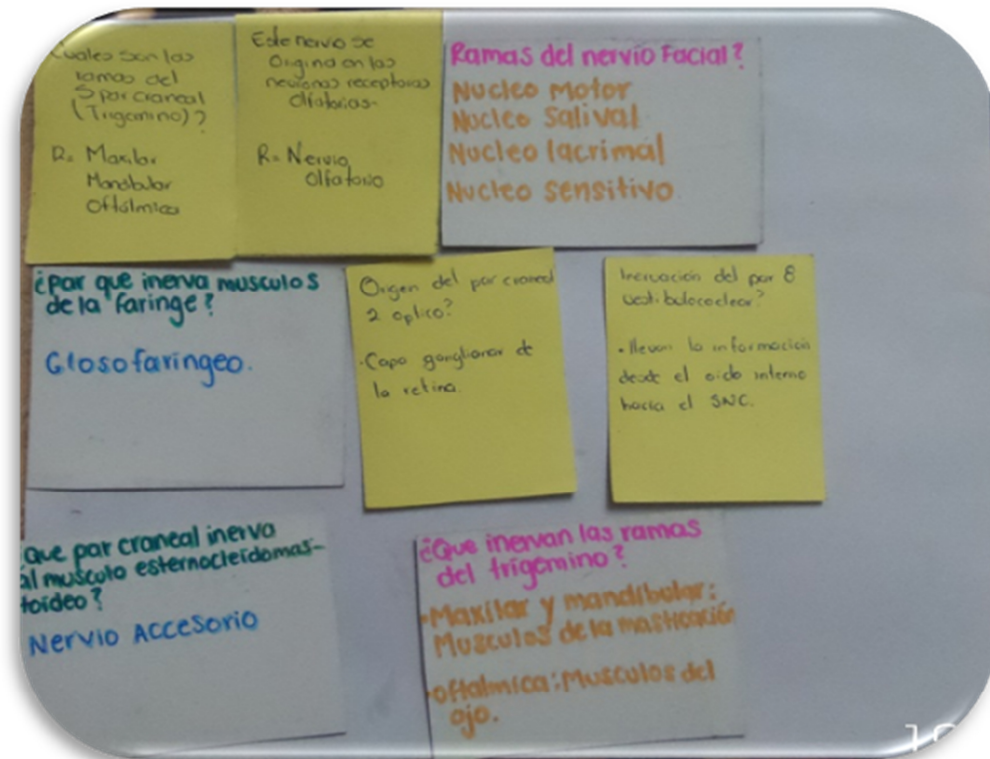 Cuales son las
ramas del
5 par craneal
(Trigemino)?
R= Maxilar
Mandibular
Oftálmica
Este nervio se
Origina en las
neuronas receptoras
olfatorias-
R= Nervio
Olfatorio
Ramas del nervio Facial?
Nucleo Motor
Nucleo Salival
Nucleo lacrimal
Nucleo sensitivo
¿Par que inerva musculos
de la faringe?
Glosofaringeo.
Origen del par craneal
2 optico?
·Capa ganglionar de
la retina.
Inervación del par 8
vestibulococlear?
·llevan la información
desde el oido interno
hacia el SNC.
Que par craneal inerva
al musculo esternocleidomas-
toideo?
Nervio Accesorio
¿Que inervan las ramas
del trigemino?
·Maxilar y mandibular:
Musculos de la masticación
·oftalmica: Musculos del
ojo.